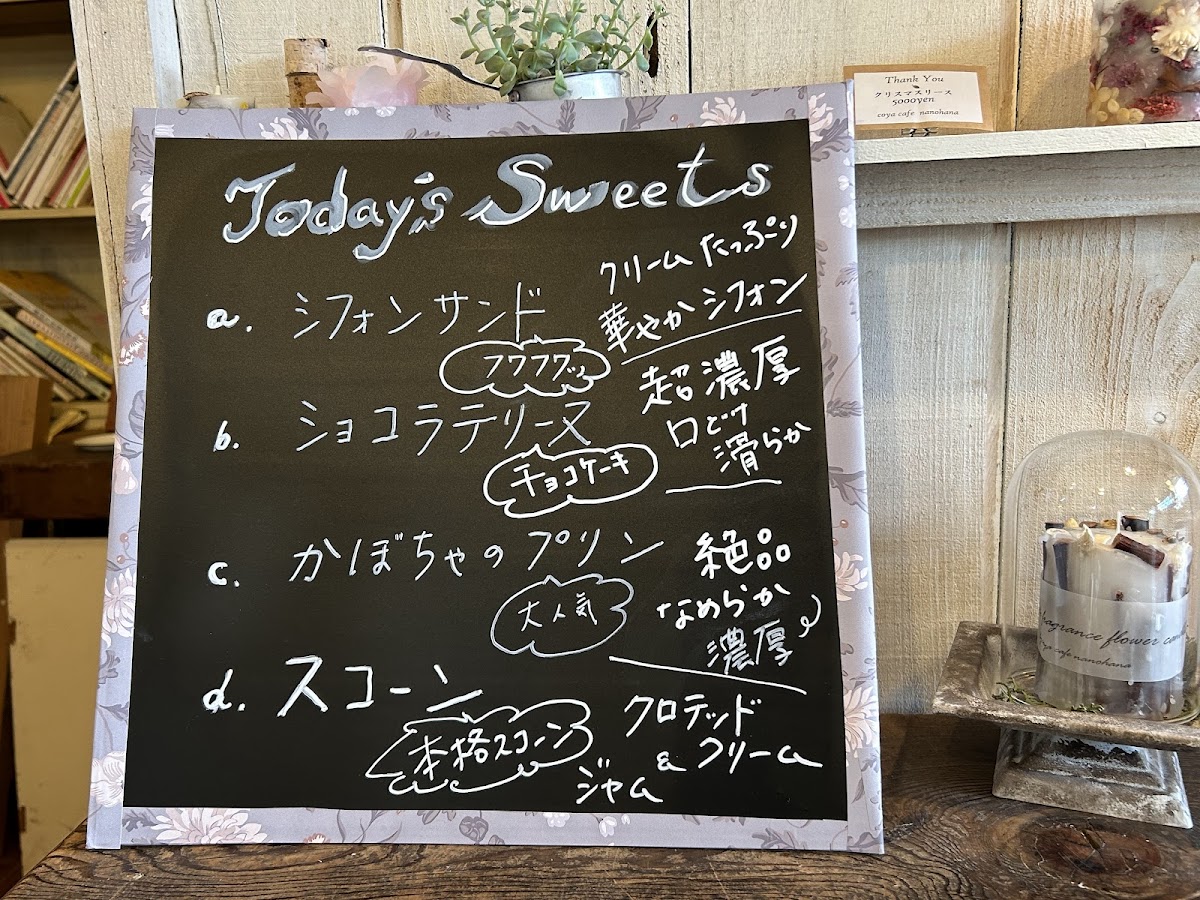 Thank You
クリスマスリース
5000yen
coya cafe nanohana
Today's Sweets
a. シフォンサンド
フワフワッ
クリームたっぷり
華やかシフォン
b. ショコラテリーヌ
チョコケーキ
超濃厚
口どけ
滑らか
c. かぼちゃのプリン
大人気
絶品
なめらか
濃厚
d. スコーン
本格スコーン
クロテッド
& クリーム
ジャム
fragrance flower can
coya cafe nanohana